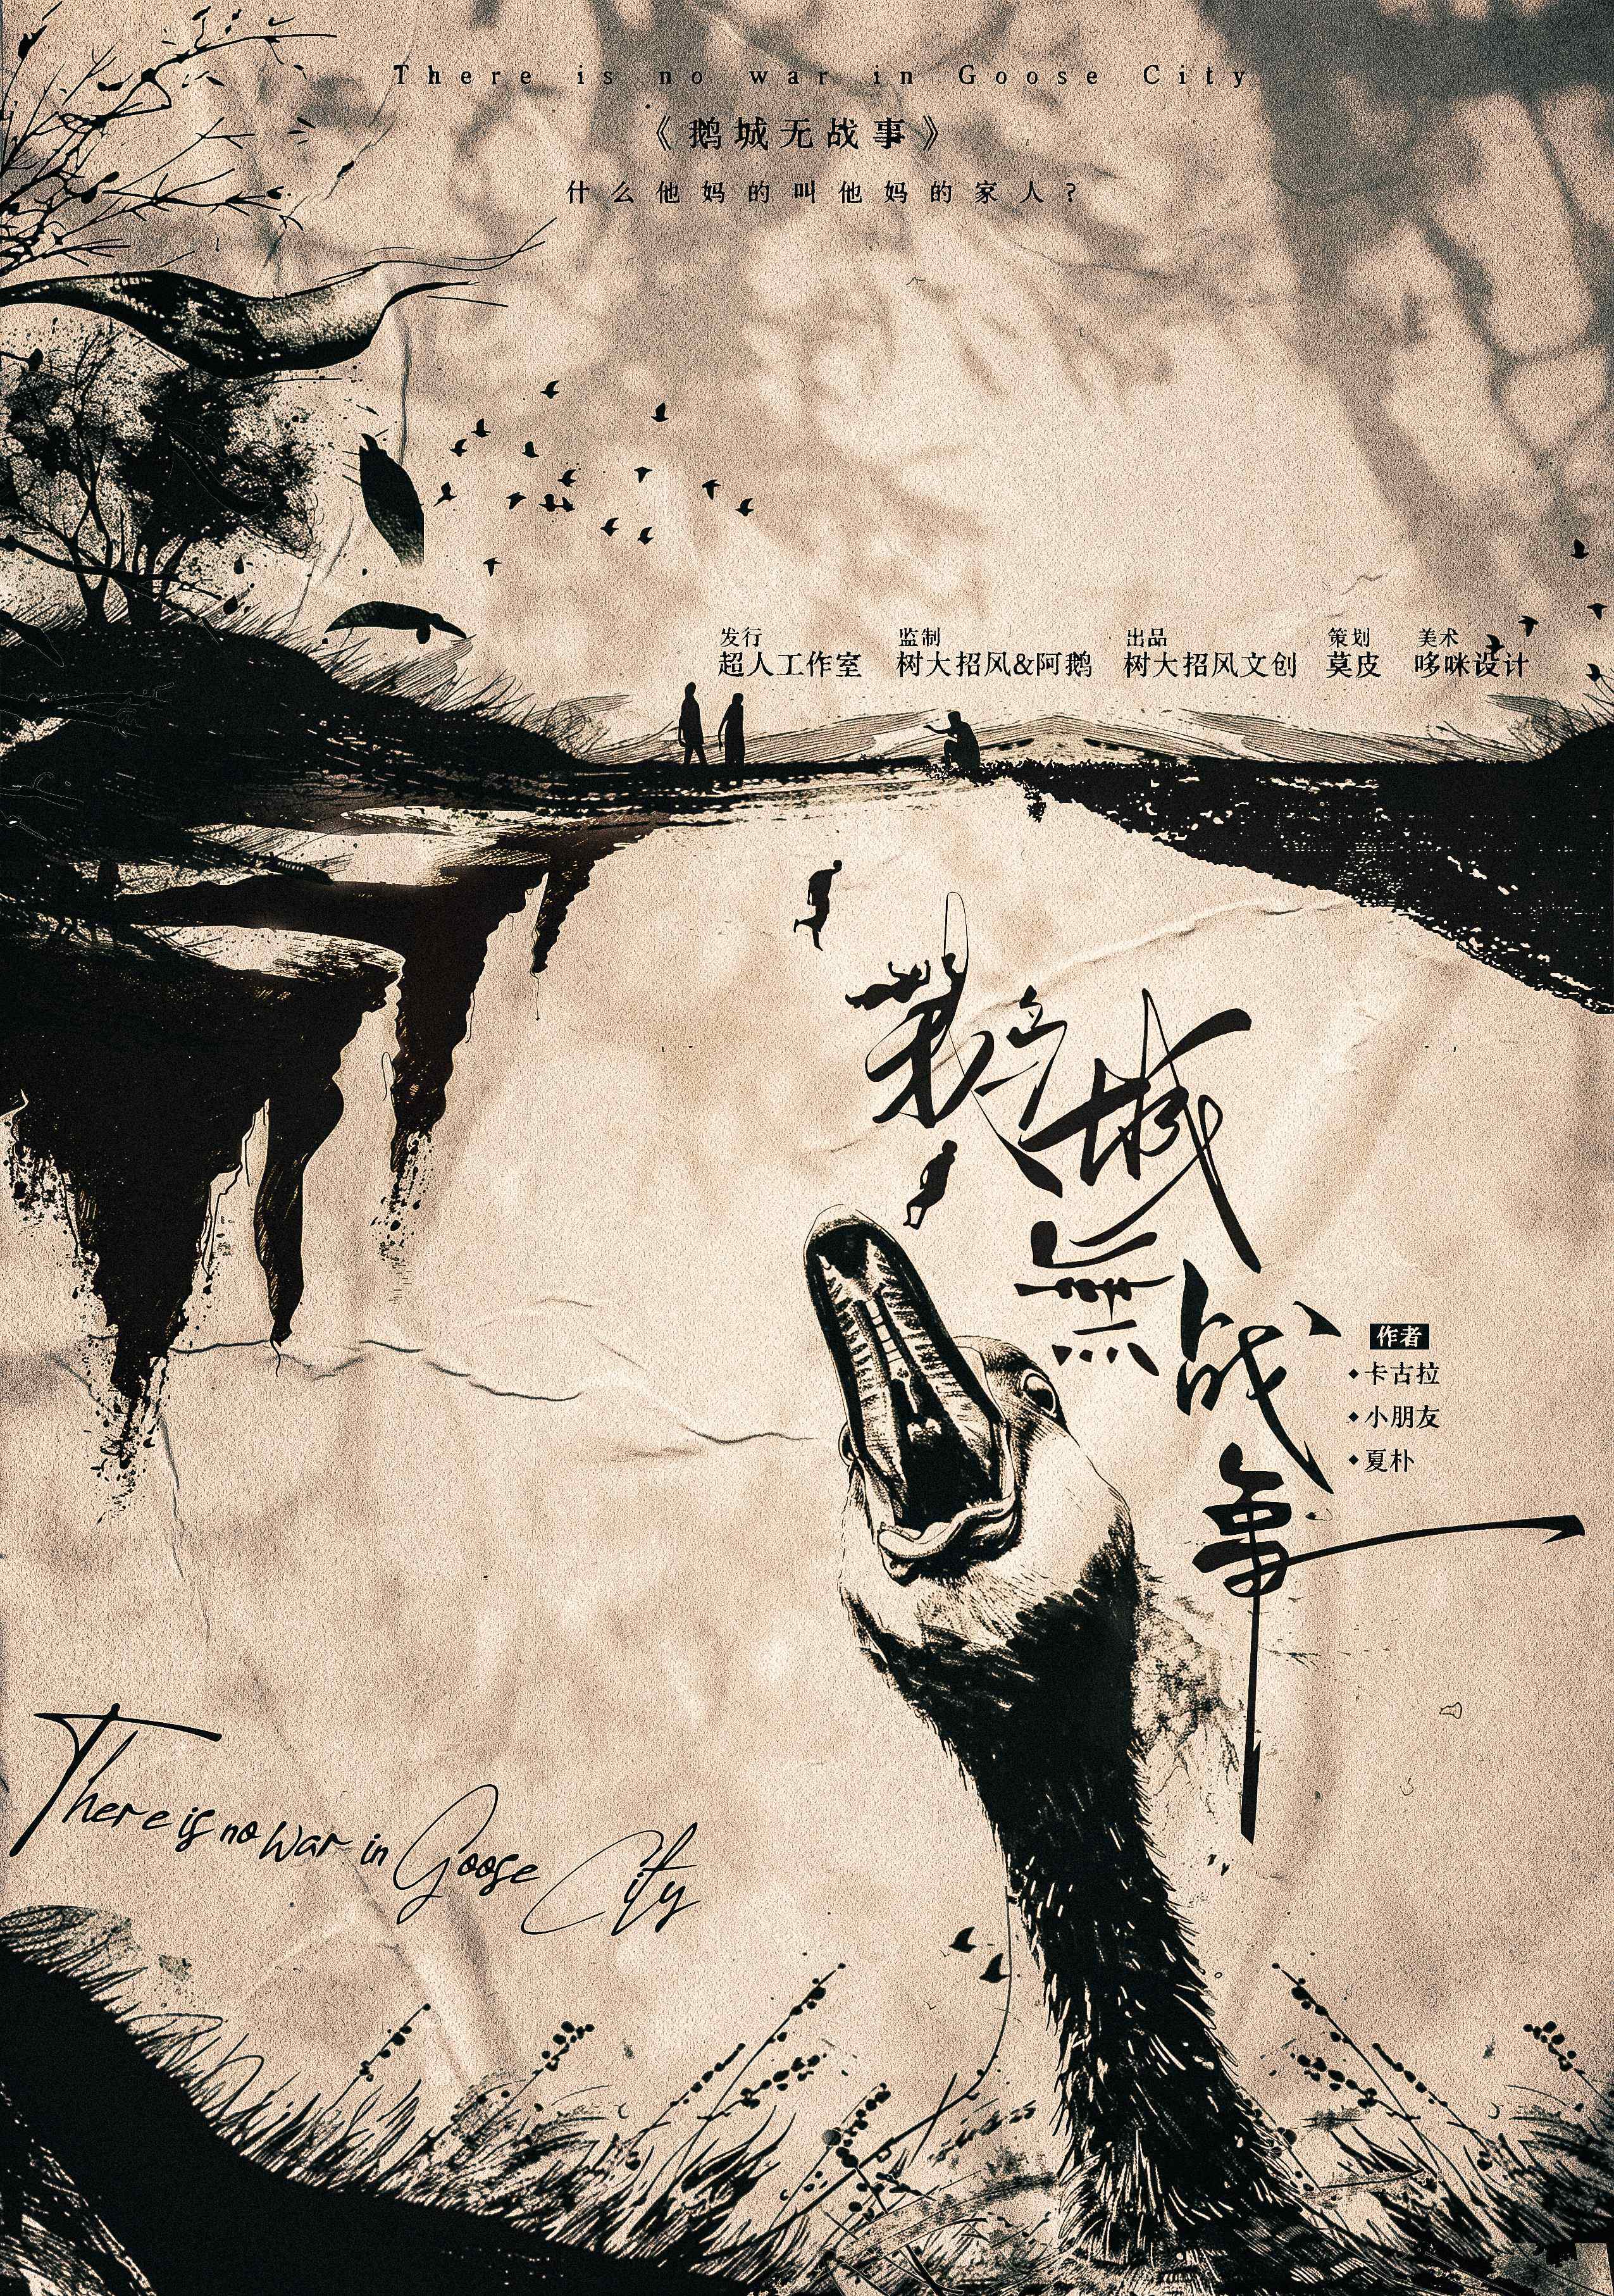 There is no war in Goose City
《鹅城无战事》
什么他妈的叫他妈的家人？
发行 监制 出品 策划 美术
超人工作室 树大招风&阿鹅 树大招风文创 莫皮 哆咪设计
鹅城
無战
事
作者
卡古拉
小朋友
夏朴
There is no war in Goose City